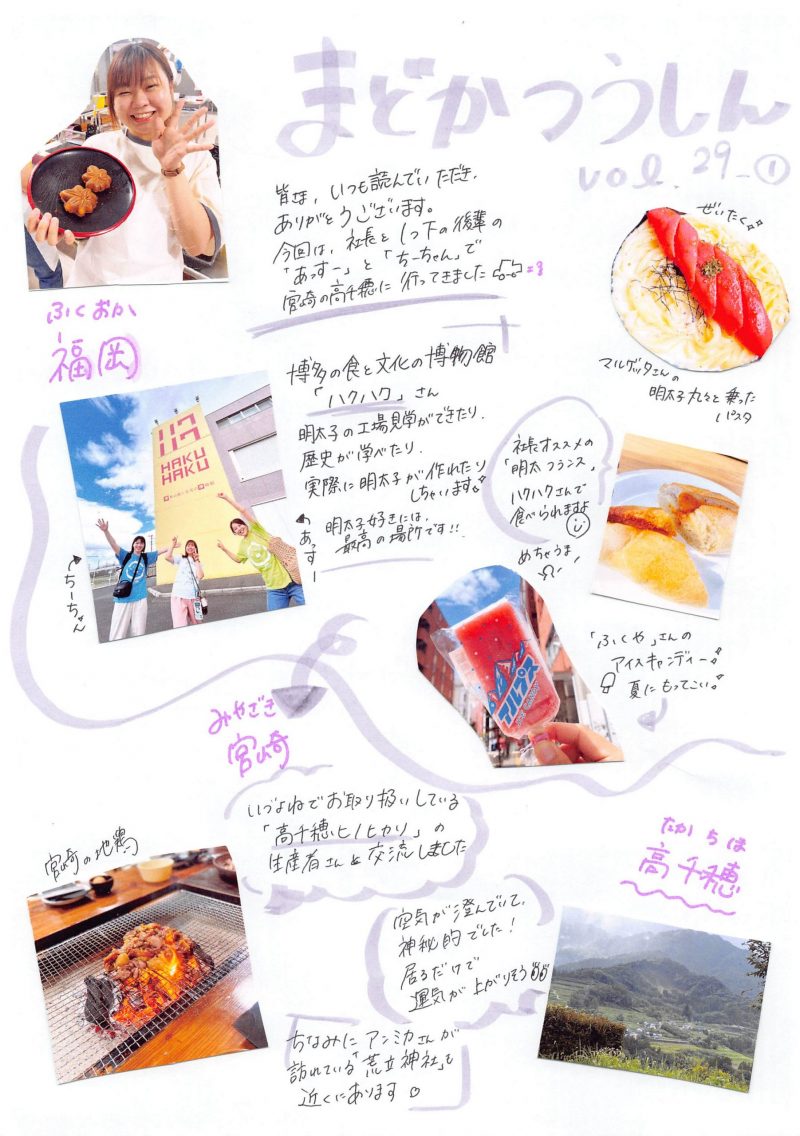 まどかつうしん
vol.29-①
皆さま、いつも読んでいただき、
ありがとうございます。
今回は、社長と1つ下の後輩の
「あっすー」と「ちーちゃん」で
宮崎の高千穂に行ってきました
ふくおか
福岡
ぜいたく
マルゲッタさんの
明太子丸々と乗った
パスタ
博多の食と文化の博物館
「ハクハク」さん
明太子の工場見学ができたり、
歴史が学べたり、
実際に明太子が作れたり
しちゃいます!
明太子好きには、
最高の場所です!!
ハクハク
HAKU
HAKU
←ちーちゃん
←あっすー
社長オススメの
「明太フランス」
ハクハクさんで
食べられますよ
めちゃうま!
「ふくや」さんの
アイスキャンディー!
夏にもってこい!
アルプス
みやざき
宮崎
いづよねでお取り扱いしている
「高千穂ヒノヒカリ」の
生産者さんと交流しました
宮崎の地鶏
たかちほ
高千穂
空気が澄んでいて、
神秘的でした!
居るだけで
運気が上がりそう
ちなみにアンミカさんが
訪れている「荒立神社」も
近くにあります